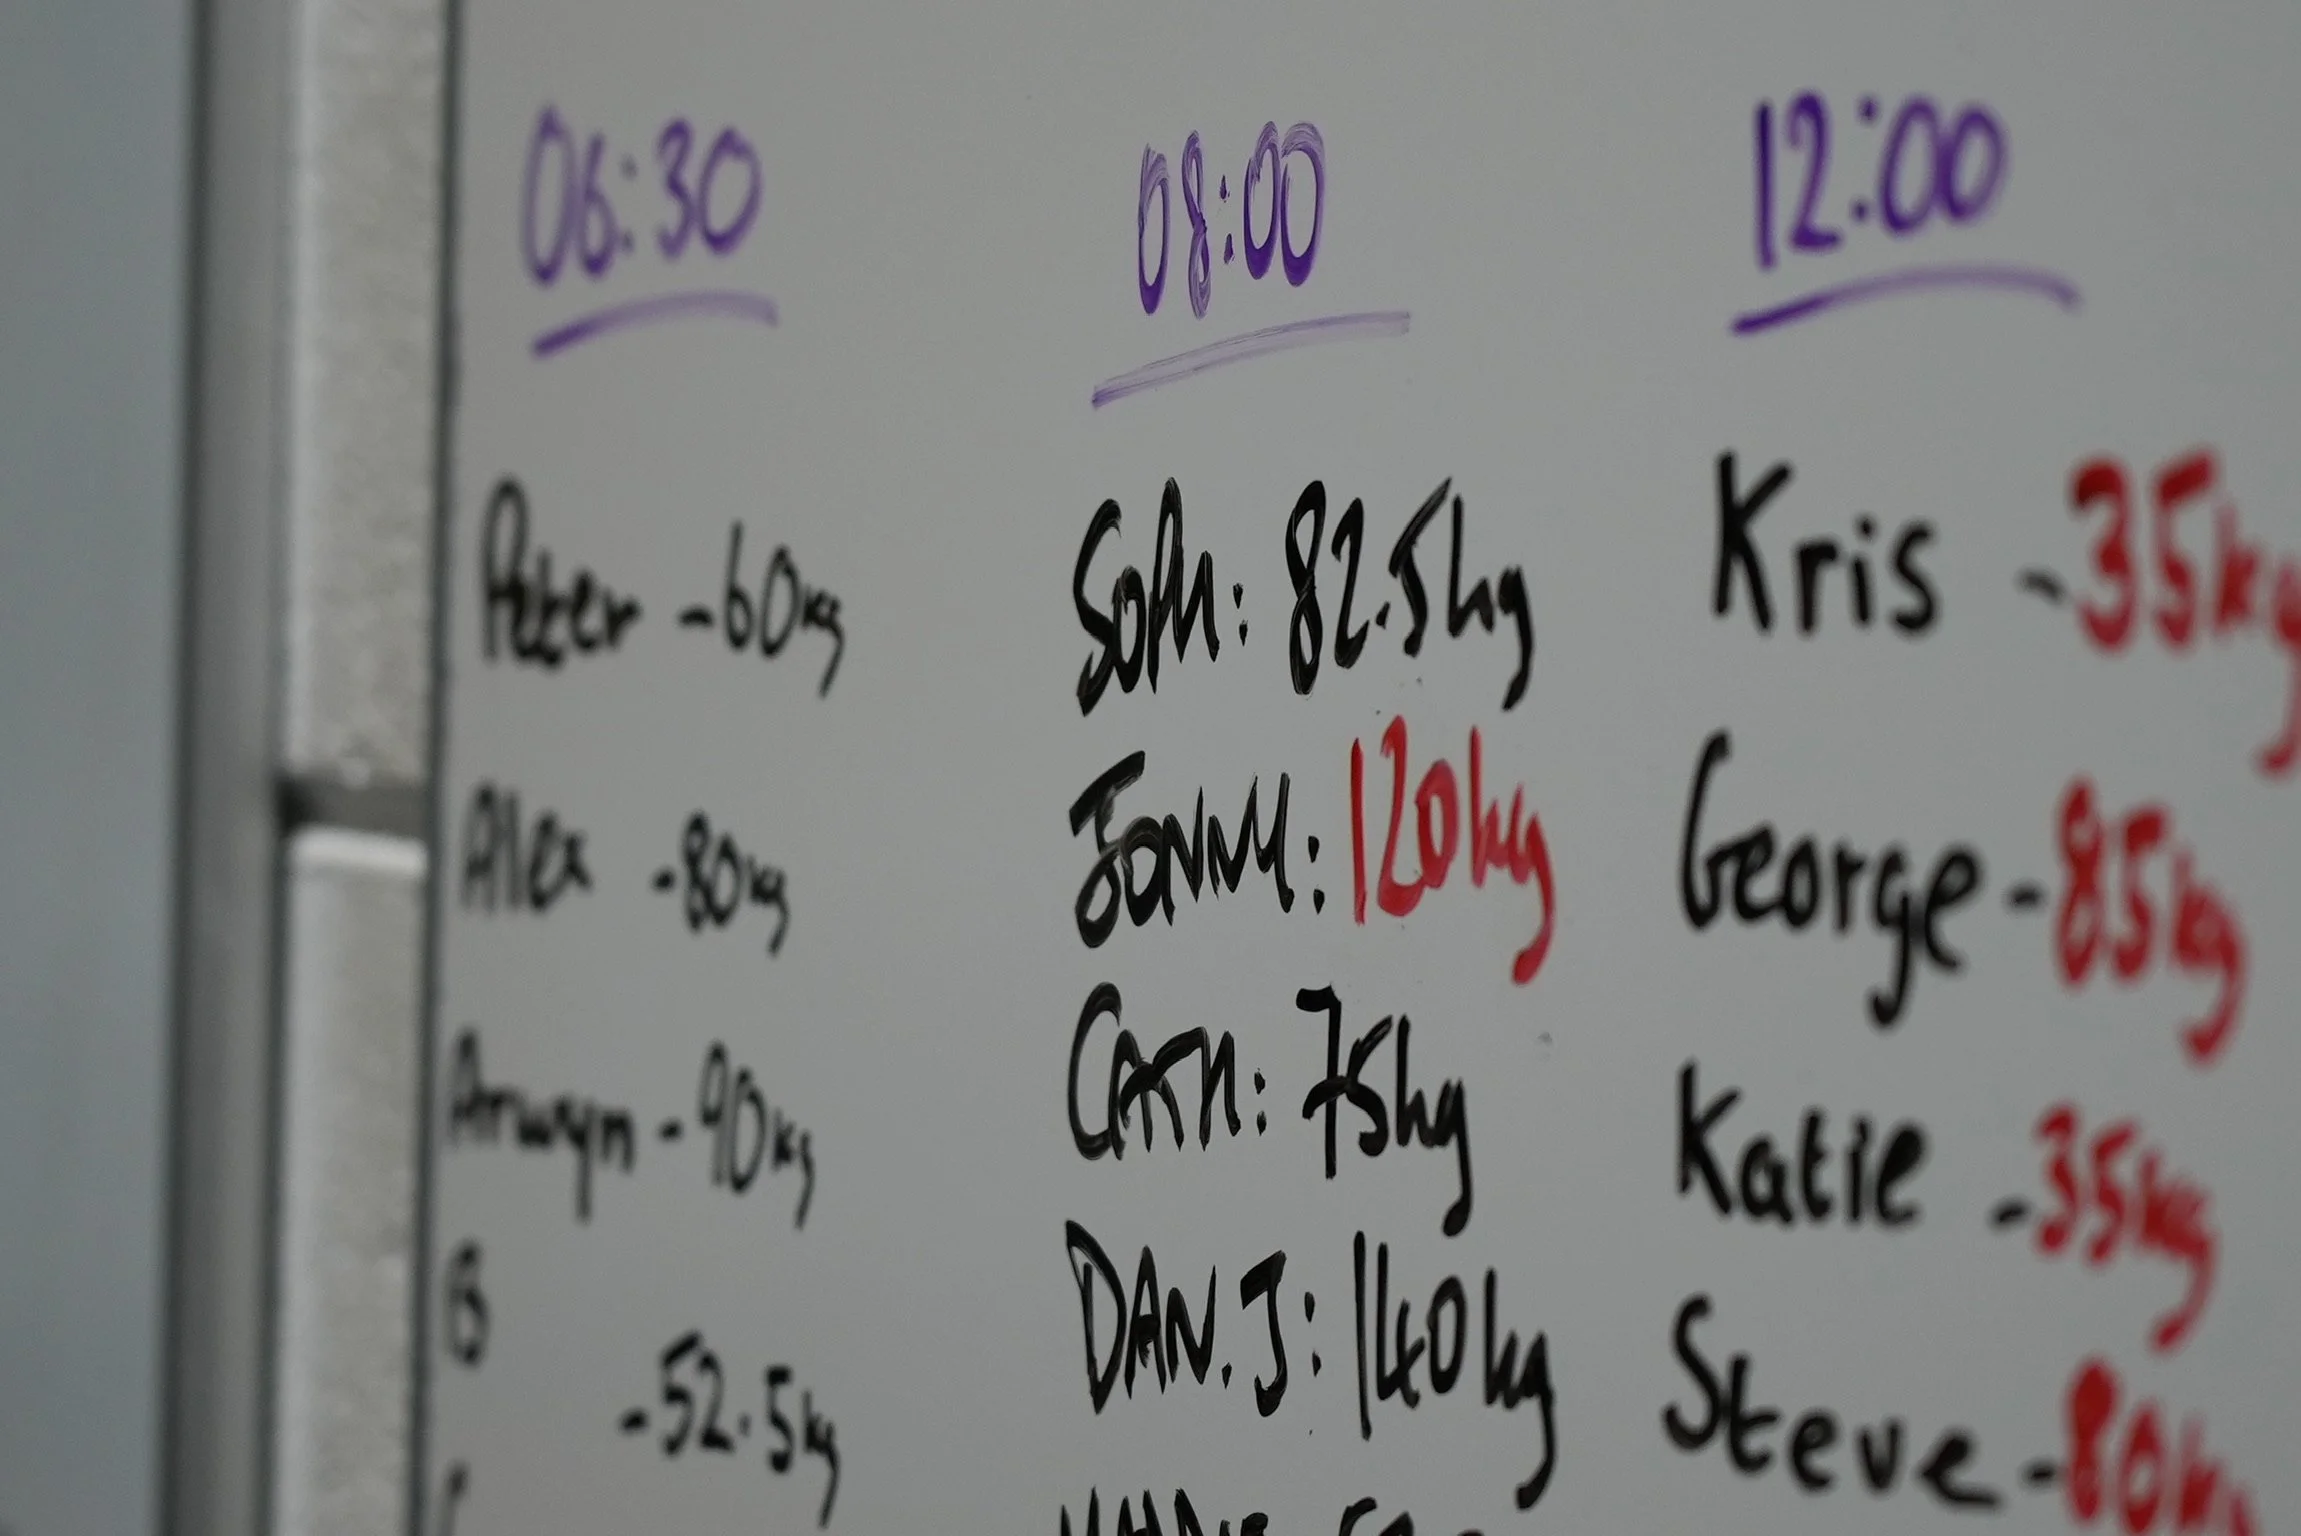 06:30
Peter - 60kg
Alex - 80kg
Arwyn - 90kg
- 52.5kg
08:00
SOPH: 82.5kg
JONNY: 120kg
CATH: 75kg
DAN.J: 140kg
12:00
Kris - 35kg
George - 85kg
Katie - 35kg
Steve - 80kg